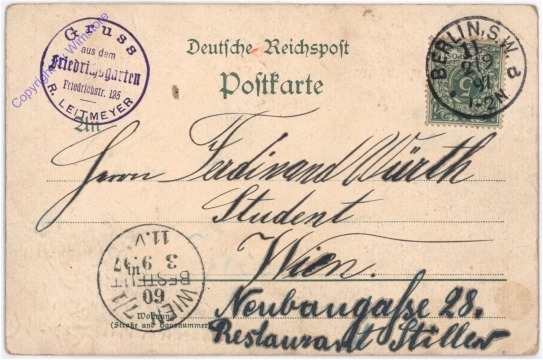 Gruss
aus dem
Friedrichsgarten
Friedrichstr. 125
R. LEITMEYER
Deutsche Reichspost
Postkarte
BERLIN, S.W.
11
2/9
97
1-2N
a
An
Herrn Ferdinand Würth
Student
Wien.
Neubaugaße 28.
Restaurant Stiller
Wohnung
(Straße und Hausnummer)
WIEN 7/1
60
BESTELLT
3 9.97
11.V